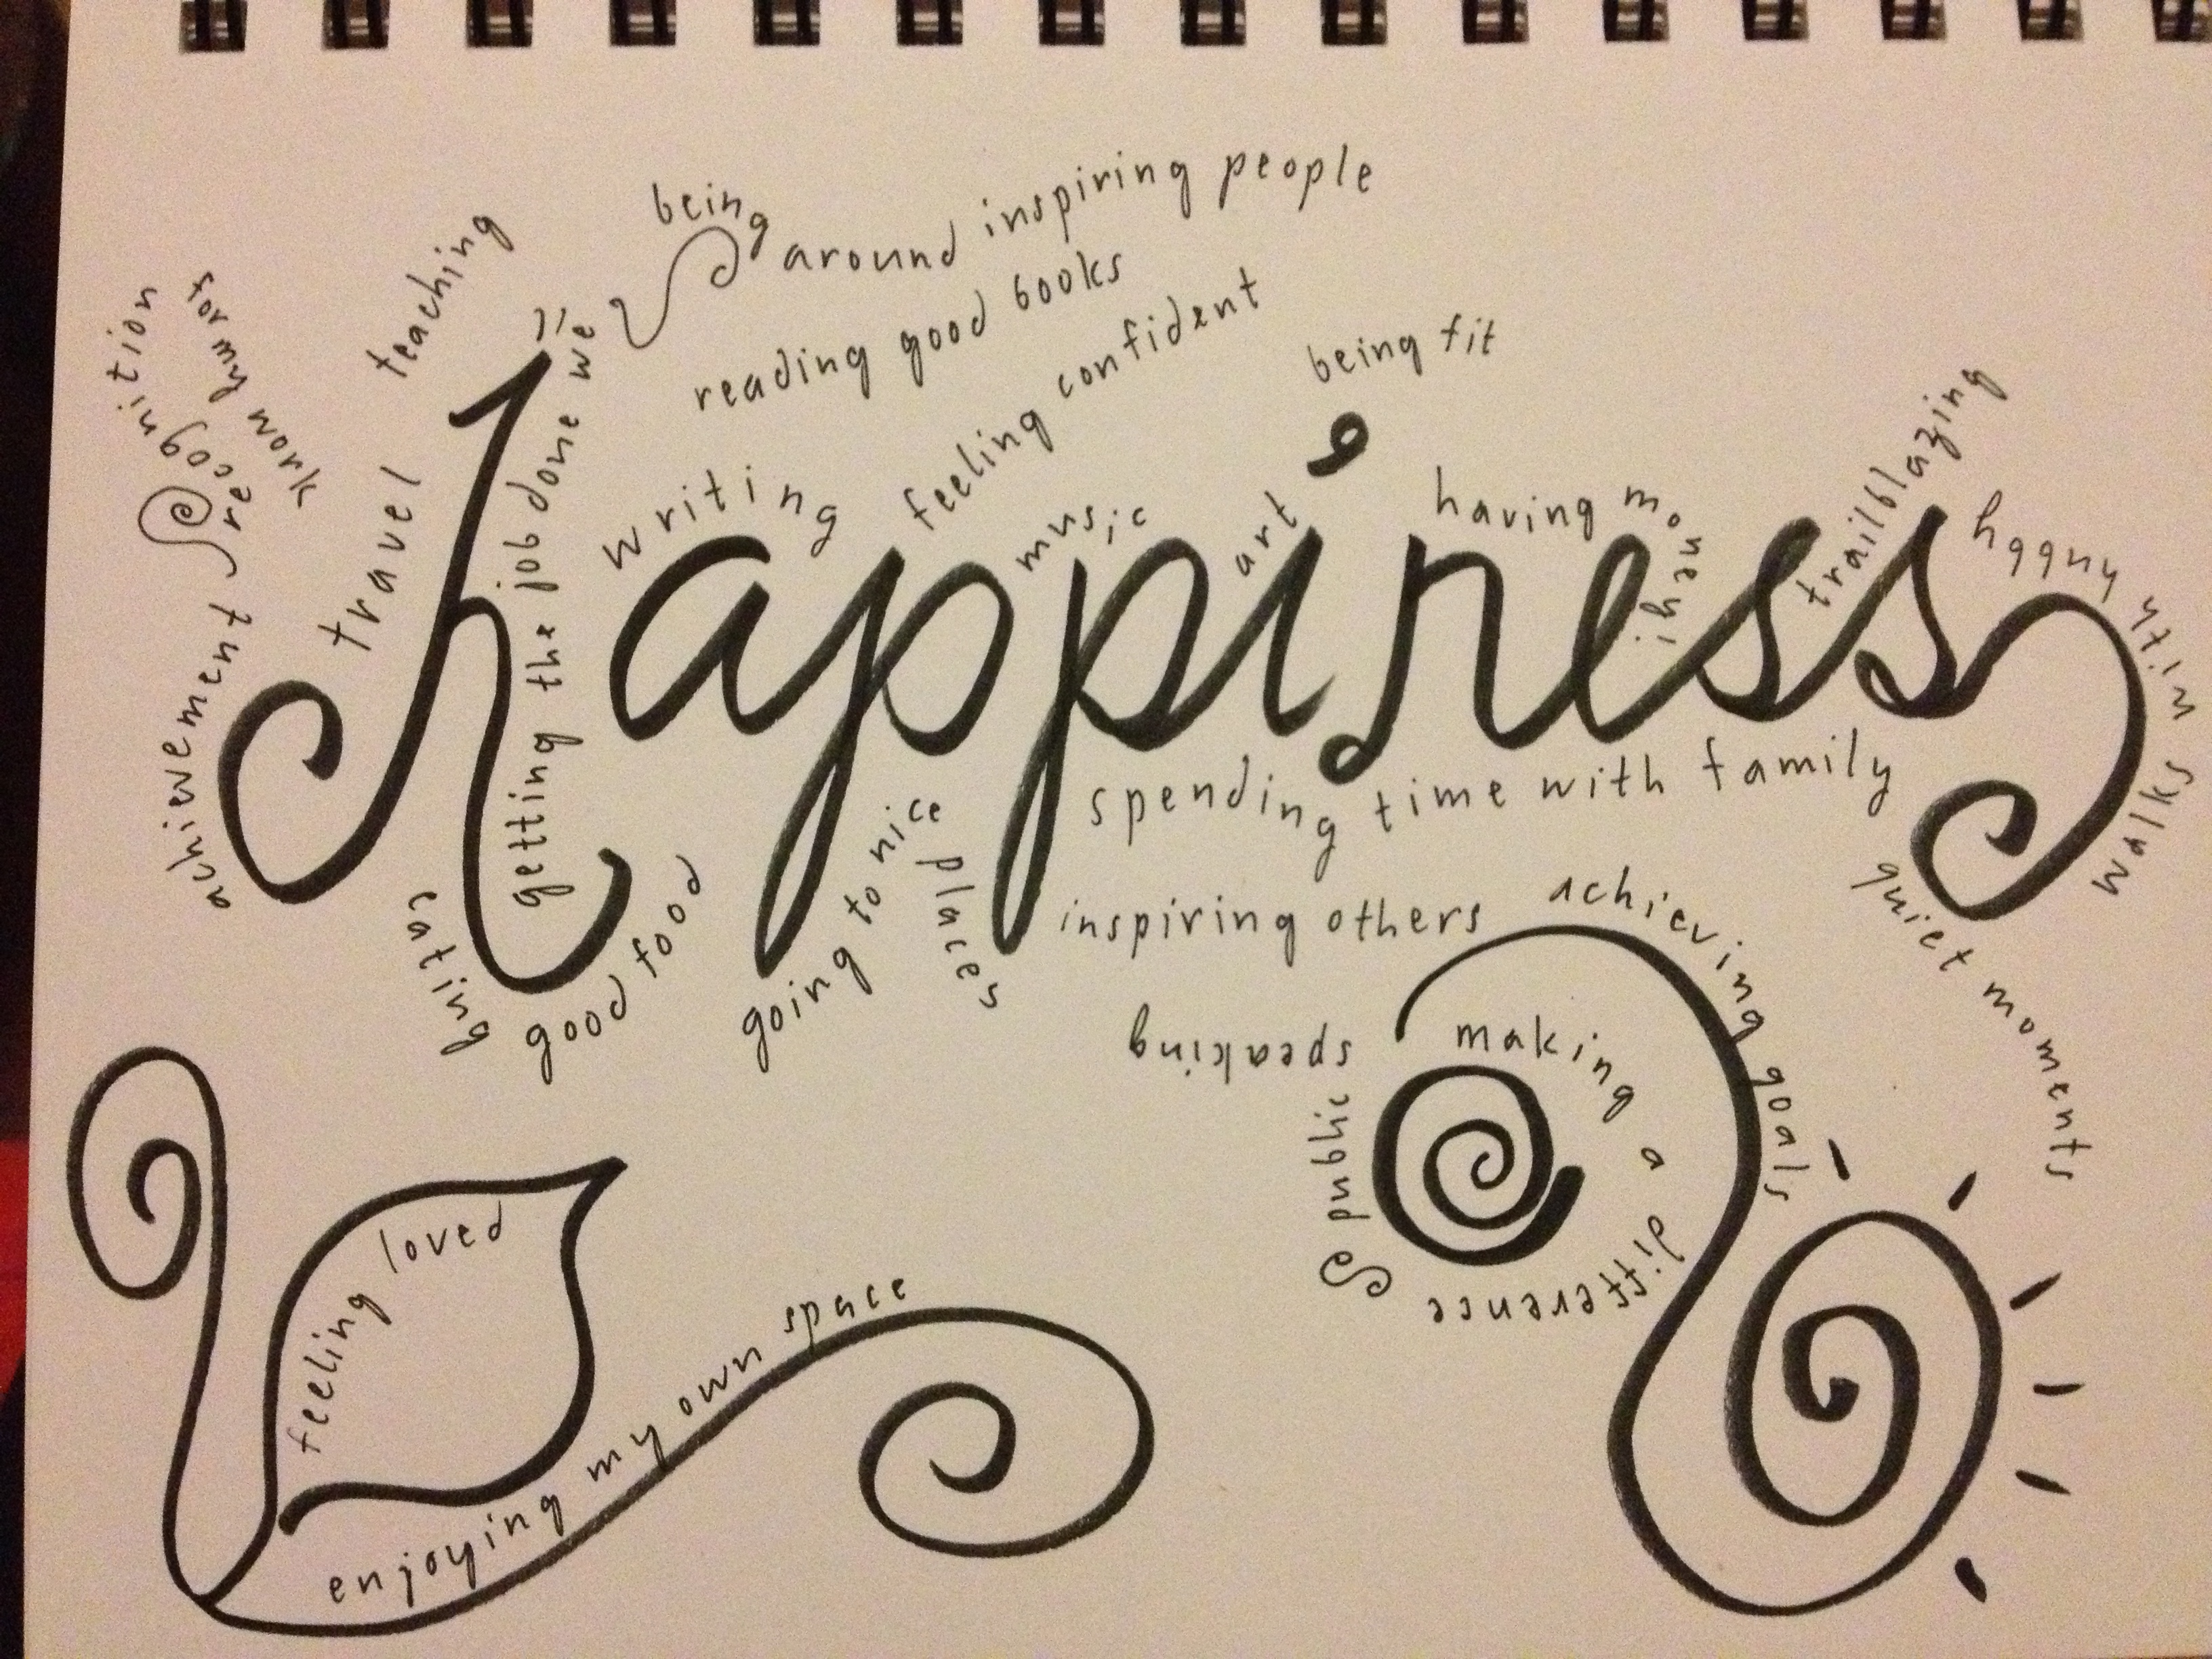 being around inspiring people
teaching
recognition for my work
reading good books
feeling confident
being fit
travel
achievement
getting the job done well
writing
music
art
having money
trailblazing
happiness
walks with hubby
spending time with family
quiet moments
eating good food
going to nice places
inspiring others
achieving goals
public speaking
making a difference
feeling loved
enjoying my own space